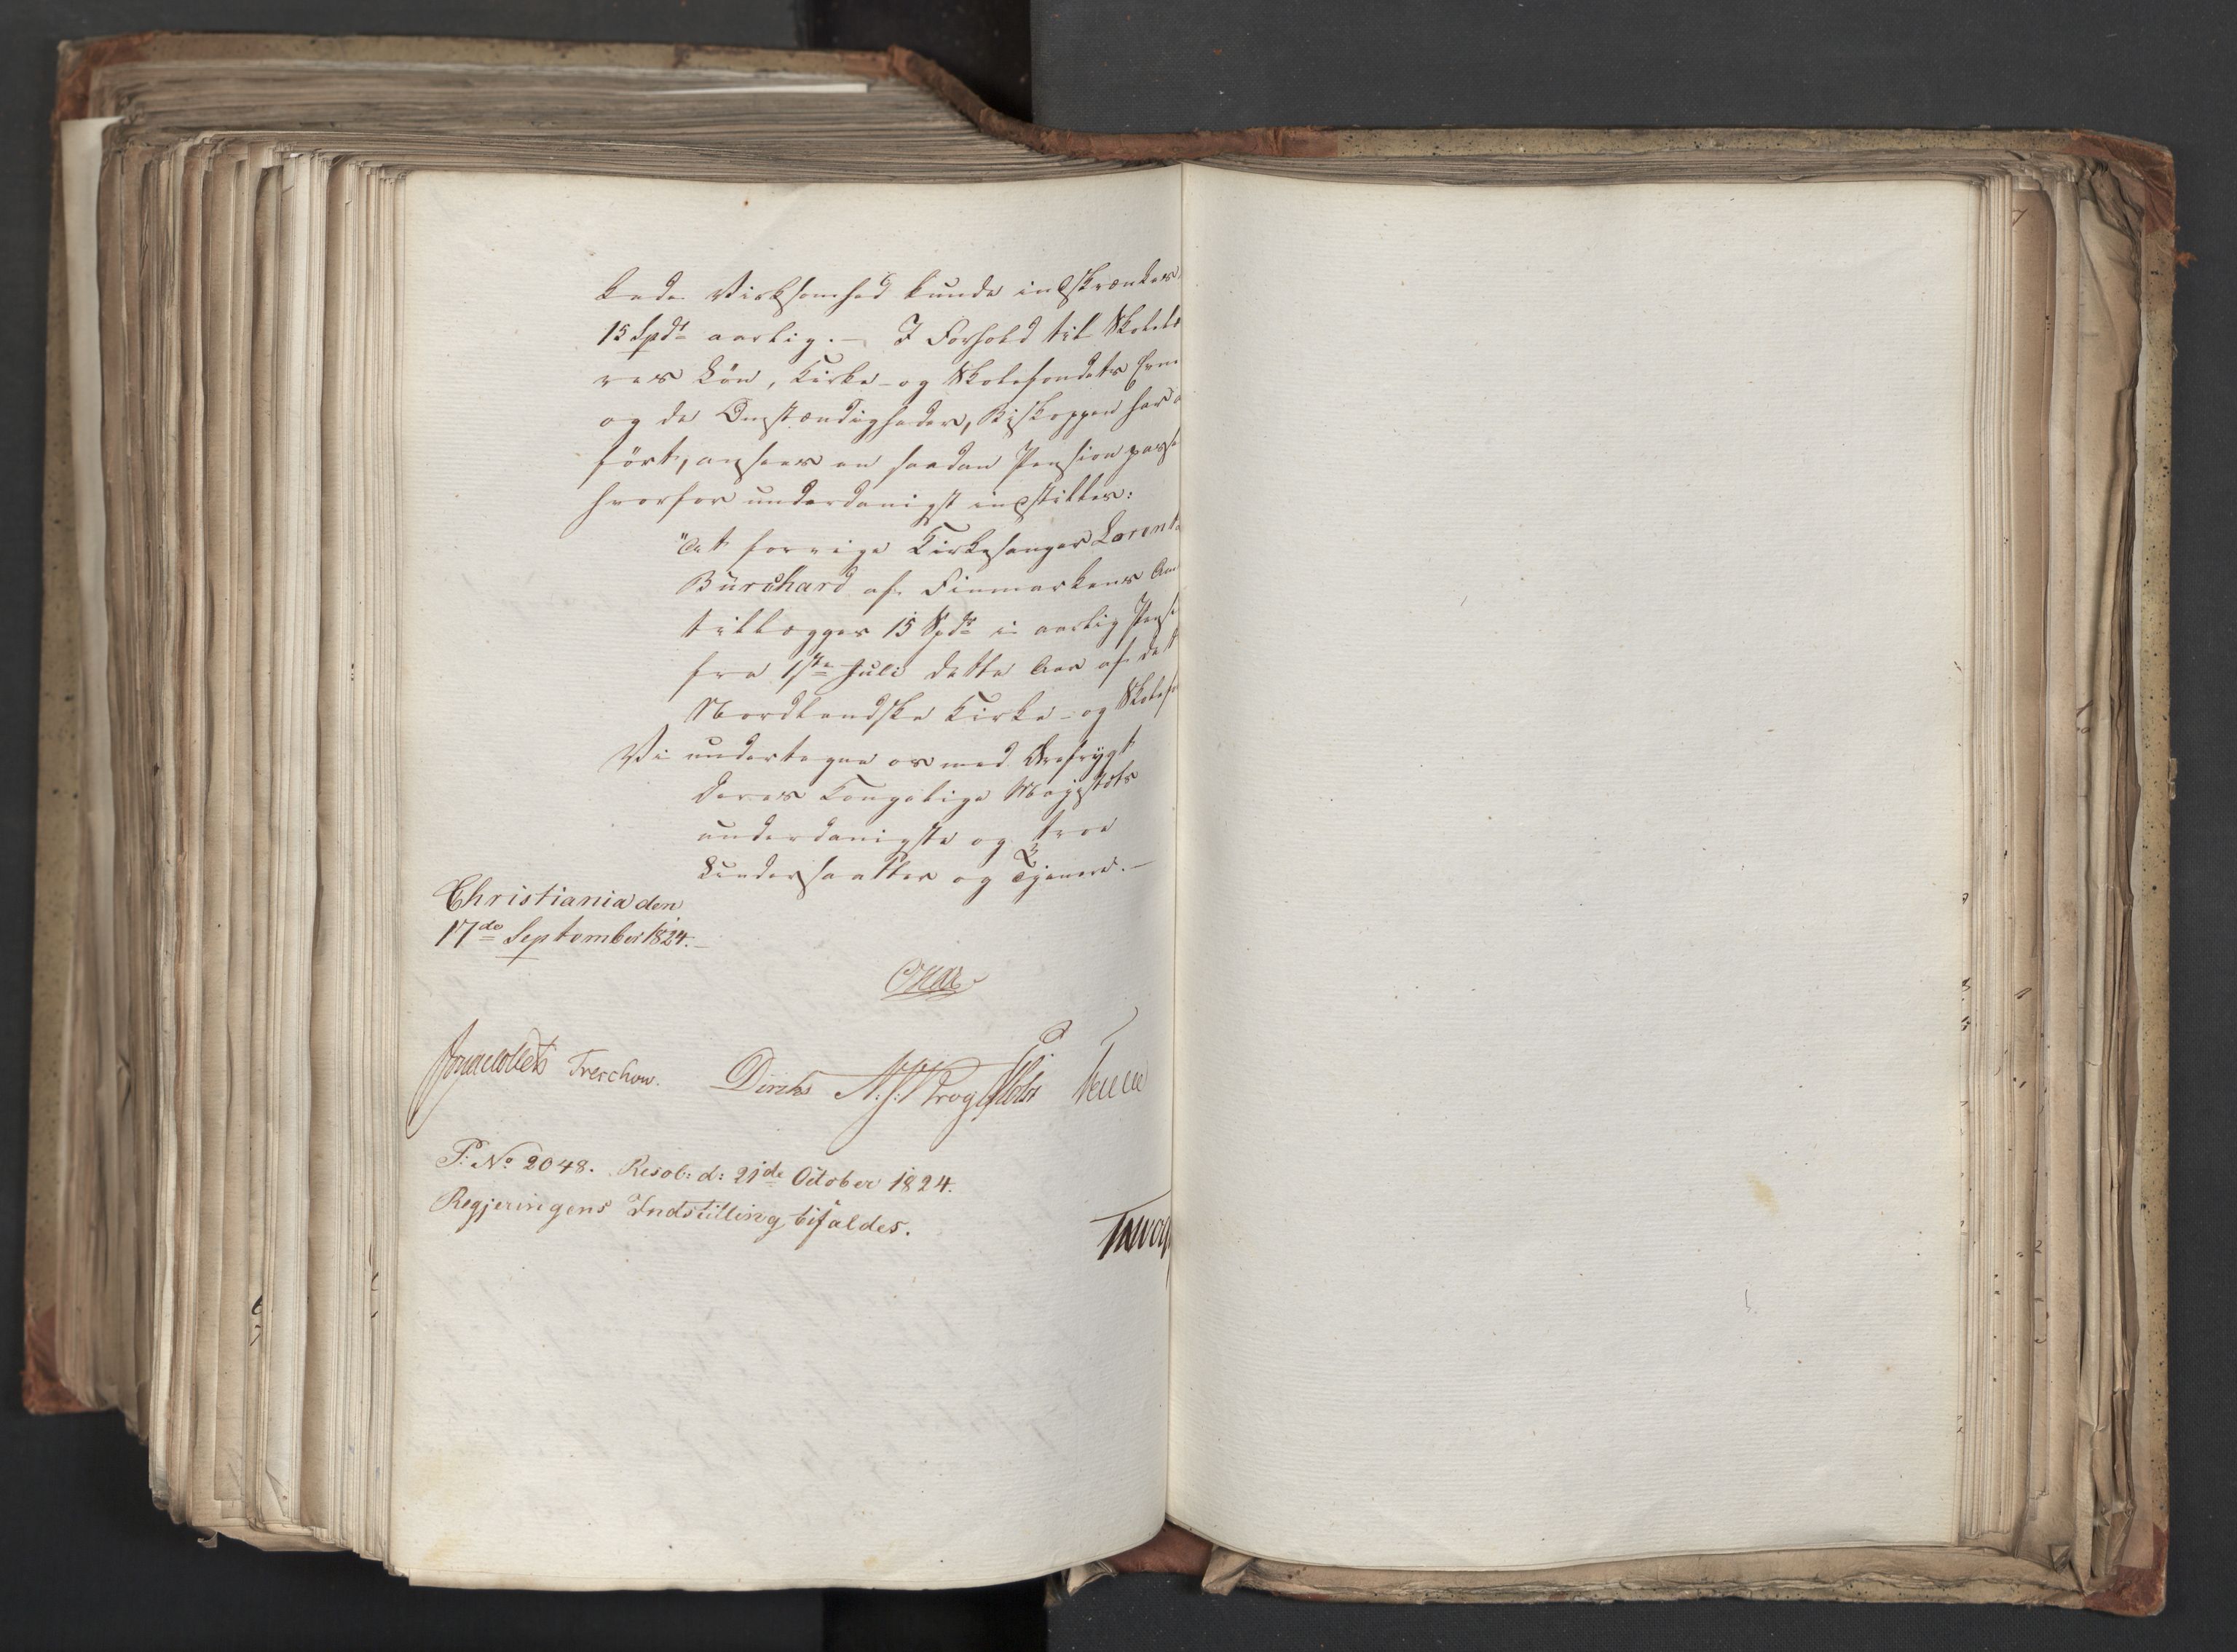 kede Virksomhed kunde indskrænkes,
15 Spd aarlig. – I Forhold til Skolelæ
rer Løn, Kirke- og Skolefondets Evne
og de Omstændigheder, Biskoppen har
ført, ansees en saadan Pension passe
hvorfor underdanigst indstilles:
"At forrige Kirkesanger Lorents
Burchard af Finmarkens Am
tillægges 15 Spdr i aarlig Pensi
fra 1ste Juli dette Aar af det
Nordlandske Kirke- og Skolefo
Vi undertegne os med Ærefrygt
Deres Kongelige Majestæts
underdanigste og troe
Undersaatter og Tjenere. –
Christiania den
17de September 1824. –
Jonas Collett Treschow. Diriks N: J: Krog
P: No 2048. Resol: d: 21de October 1824.
Regjeringens Indstilling bifaldes.